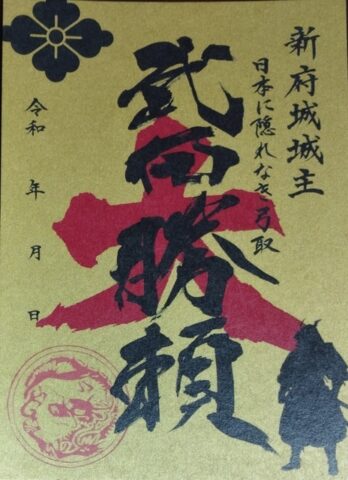 新府城城主
日本に隠れなき弓取
武田勝頼
大
令和 年 月 日